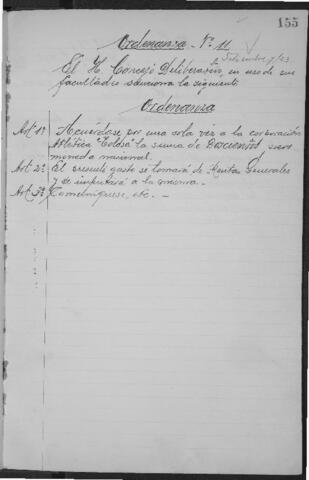 155
Ordenanza Nº 11
Setiembre 1/23
El H. Concejo Deliberante, en uso de sus
facultades sanciona la siguiente
Ordenanza
Art. 1º Acuérdase por una sola vez a la corporación
Atlética Tolosa la suma de Doscientos pesos
moneda nacional.
Art. 2º El presente gasto se tomará de Rentas Generales
y se imputará a la misma.
Art. 3º Comuníquese, etc. —